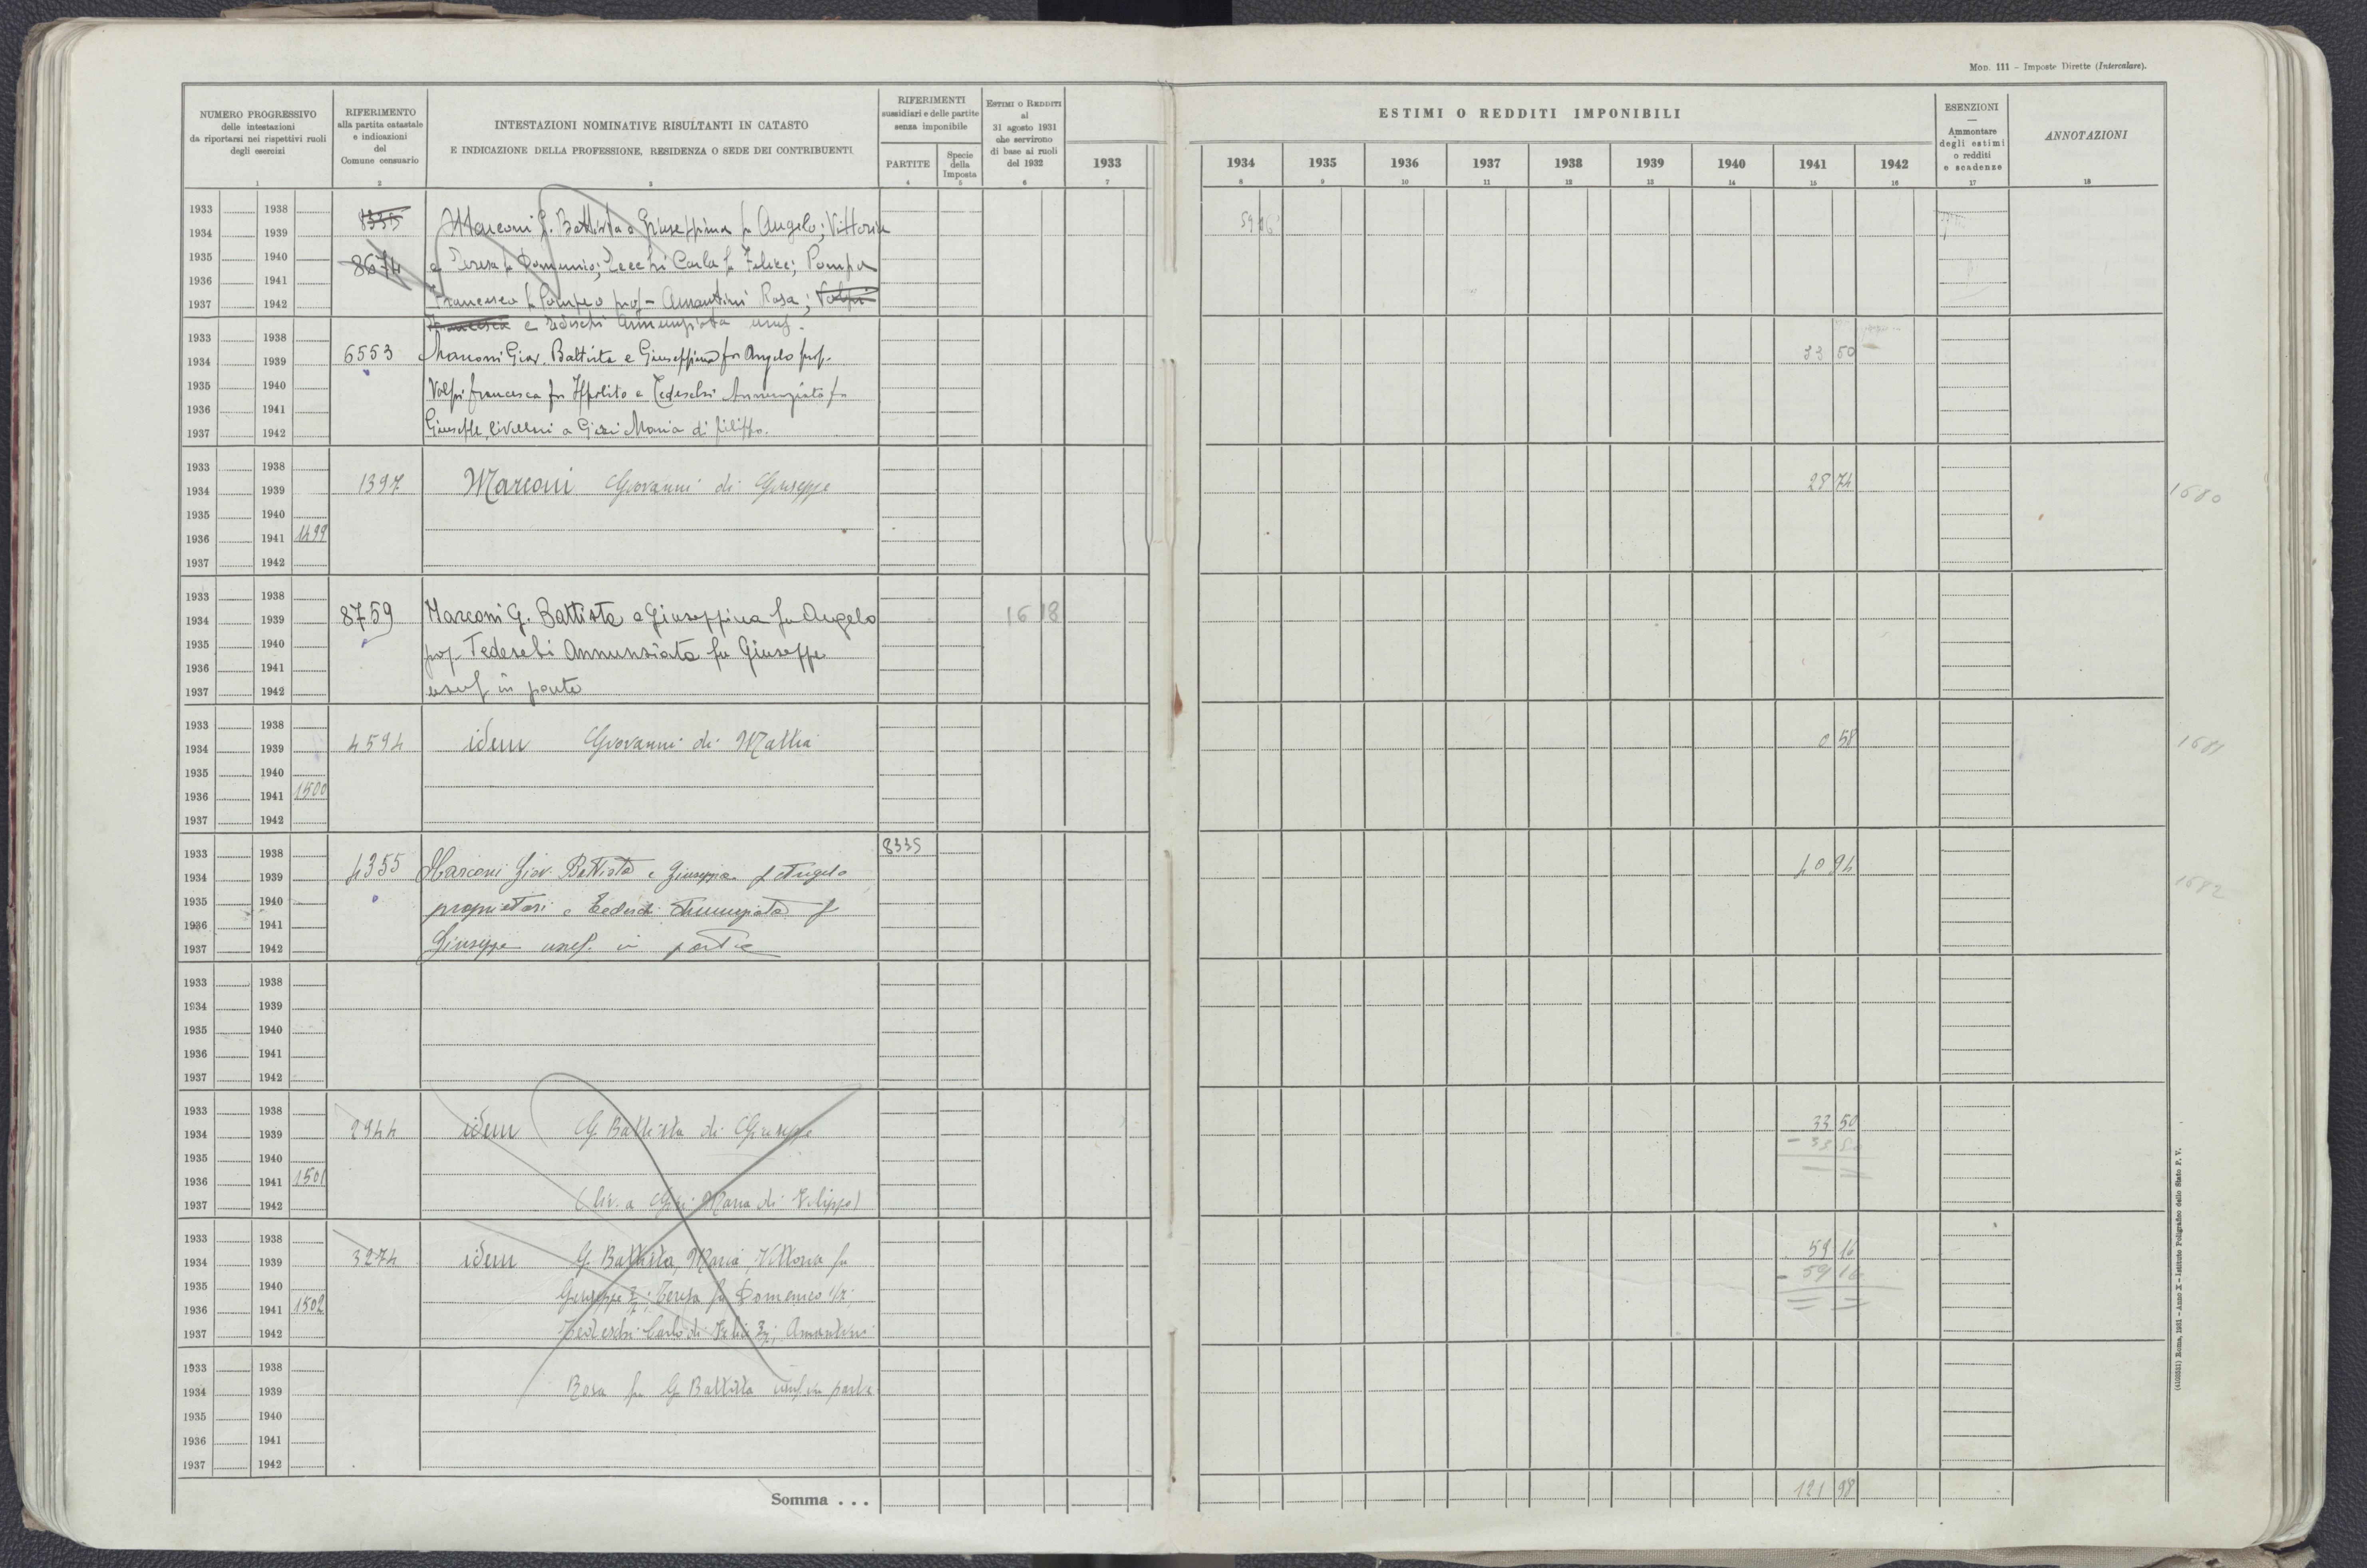 Mod. 111 - Imposte Dirette (Intercalare).
NUMERO PROGRESSIVO
delle intestazioni
da riportarsi nei rispettivi ruoli
degli esercizi
1
RIFERIMENTO
alla partita catastale
e indicazioni
del
Comune censuario
2
INTESTAZIONI NOMINATIVE RISULTANTI IN CATASTO
E INDICAZIONE DELLA PROFESSIONE, RESIDENZA O SEDE DEI CONTRIBUENTI
3
RIFERIMENTI
sussidiari e delle partite
senza imponibile
PARTITE
4
Specie
della
Imposta
5
Estimi o Redditi
al
31 agosto 1931
che servirono
di base ai ruoli
del 1932
6
1933
7
ESTIMI O REDDITI IMPONIBILI
1934 1935 1936 1937 1938 1939 1940 1941 1942
8 9 10 11 12 13 14 15 16
ESENZIONI
—
Ammontare
degli estimi
o redditi
e scadenze
17
ANNOTAZIONI
18
1933 1938
1934 1939 8335 Marconi G. Battista e Giuseppina fu Angelo; Vittoria 59 16
1935 1940 8674 e Teresa fu Domenico; Zecchi Carla fu Felice; Pompa
1936 1941
1937 1942 Francesco fu Pompeo prof - Amantini Rosa; Volpi
Francesca e Tedeschi Annunziata usuf.
1933 1938
1934 1939 6553 Marconi Giov. Battista e Giuseppina fu Angelo prop. 33 50
1935 1940 Volpi Francesca fu Ippolito e Tedeschi Annunziata fu
1936 1941
1937 1942 Giuseppe, livellari a Gizzi Maria di Filippo.
1933 1938
1934 1939 1397 Marconi Giovanni di Giuseppe 28 74 1680
1935 1940
1936 1941 1499
1937 1942
1933 1938
1934 1939 8759 Marconi G. Battista e Giuseppina fu Angelo 16 18
1935 1940 prop. Tedeschi Annunziata fu Giuseppe
1936 1941
1937 1942 usuf in parte
1933 1938
1934 1939 4594 idem Giovanni di Mattia 0 58 1681
1935 1940
1936 1941 1500
1937 1942
1933 1938 8335
1934 1939 4355 Marconi Giov. Battista e Giuseppina f Angelo 40 94 1682
1935 1940 proprietari e Tedeschi Annunziata f
1936 1941
1937 1942 Giuseppe usuf. in parte
1933 1938
1934 1939
1935 1940
1936 1941
1937 1942
1933 1938
1934 1939 2944 idem G. Battista di Giuseppe 33 50
1935 1940 - 33 50
1936 1941 1501
1937 1942 (liv. a Gizzi Maria di Filippo)
1933 1938
1934 1939 3274 idem G. Battista, Maria, Vittoria fu 59 16
1935 1940 Giuseppe; Teresa fu Domenico - 59 16
1936 1941 1502
1937 1942 Tedeschi Carlo di Felice; Amantini
1933 1938
1934 1939 Rosa fu G. Battista usuf. in parte
1935 1940
1936 1941
1937 1942
Somma . . . 121 98
(4103531) Roma, 1931 - Anno X - Istituto Poligrafico dello Stato P. V.